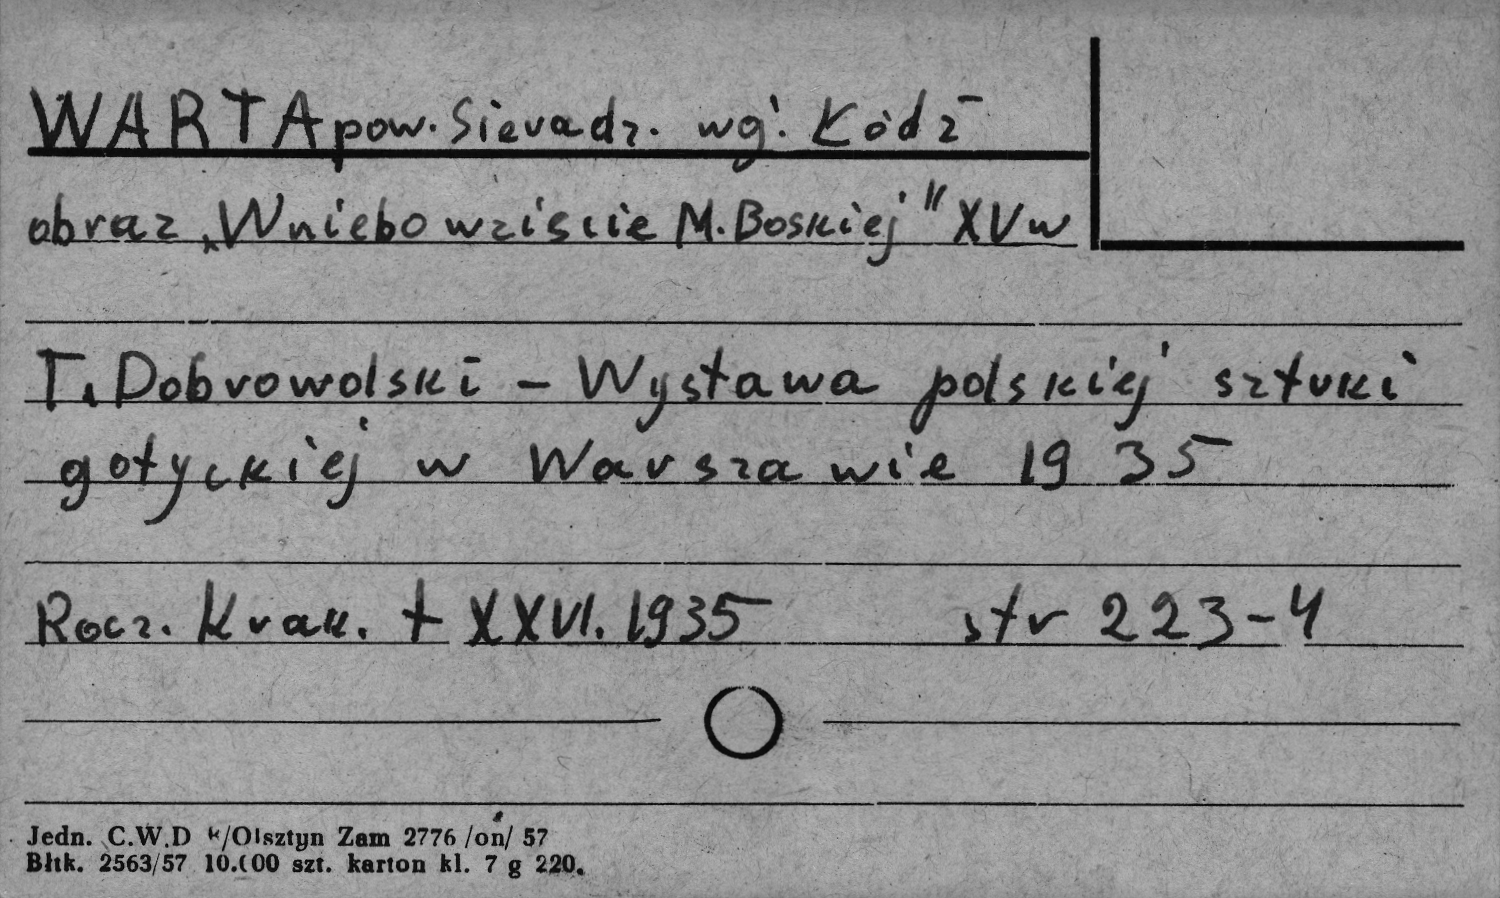 WARTA pow. Sieradz. wg. Łódź
obraz „Wniebowzięcie M. Boskiej" XV w
T. Dobrowolski – Wystawa polskiej sztuki
gotyckiej w Warszawie 1935
Rocz. Krak. t XXVI. 1935 str 223-4
Jedn. C.W.D k/Olsztyn Zam 2776 /on/ 57
Błtk. 2563/57 10.000 szt. karton kl. 7 g 220.